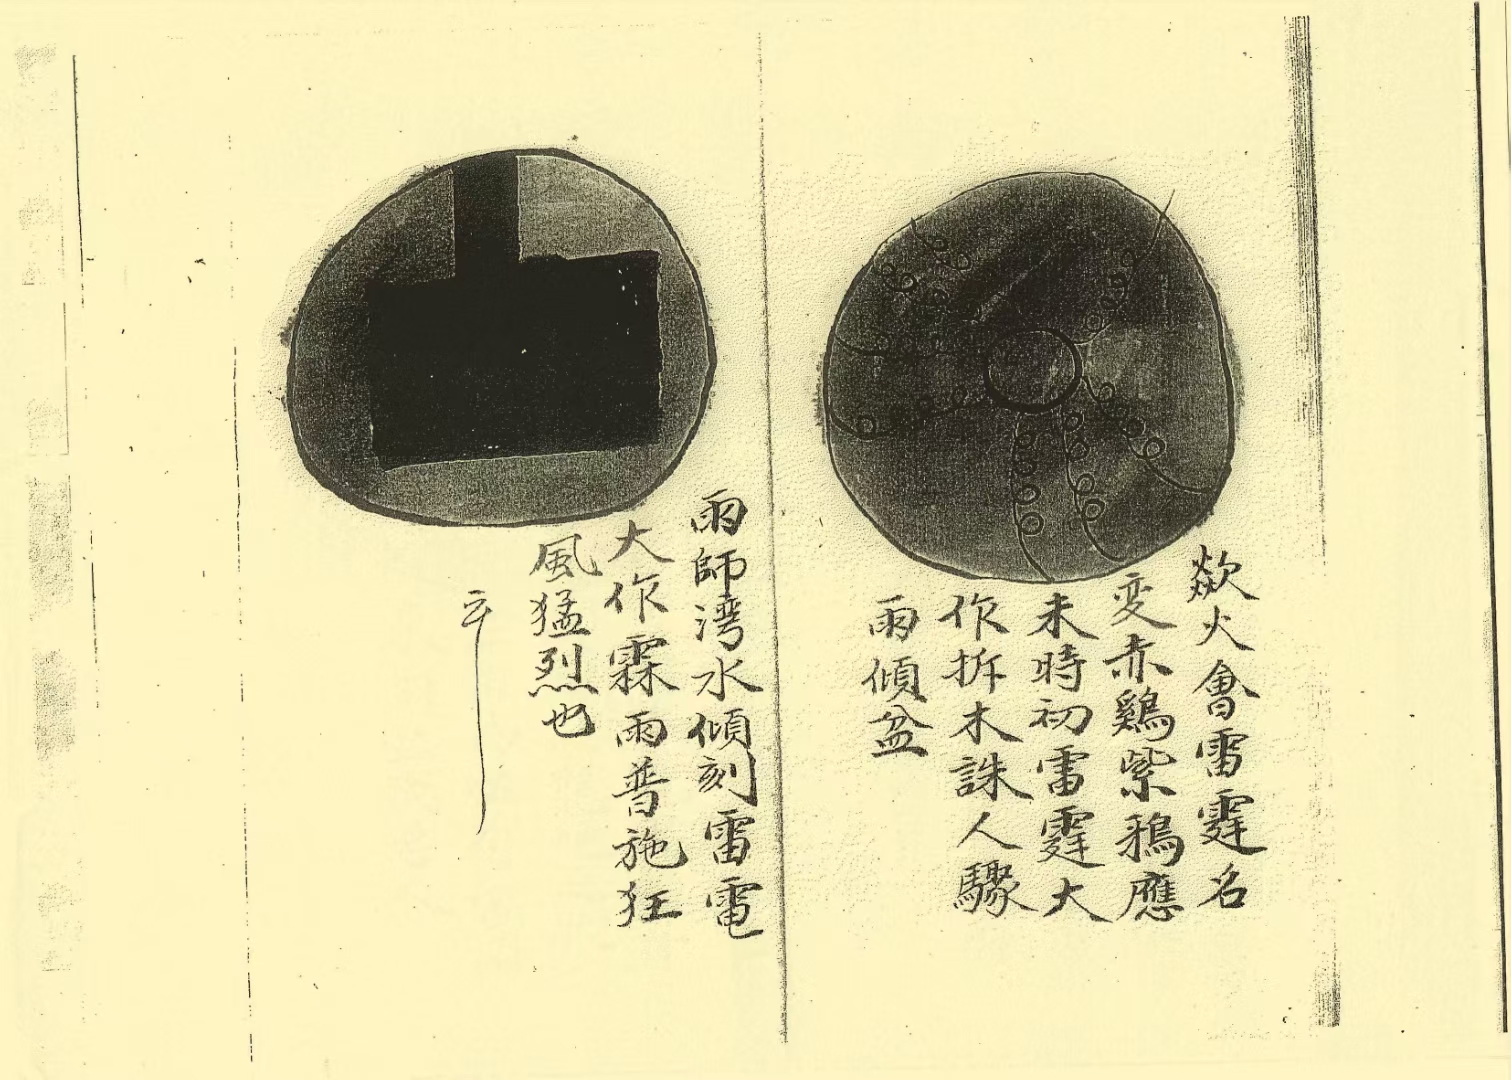 歘火會雷霆名
変赤鷄紫鴉應
未時初雷霆大
作拆木誅人驟
雨傾盆
雨師湾水傾刻雷電
大作霖雨普施狂
風猛烈也